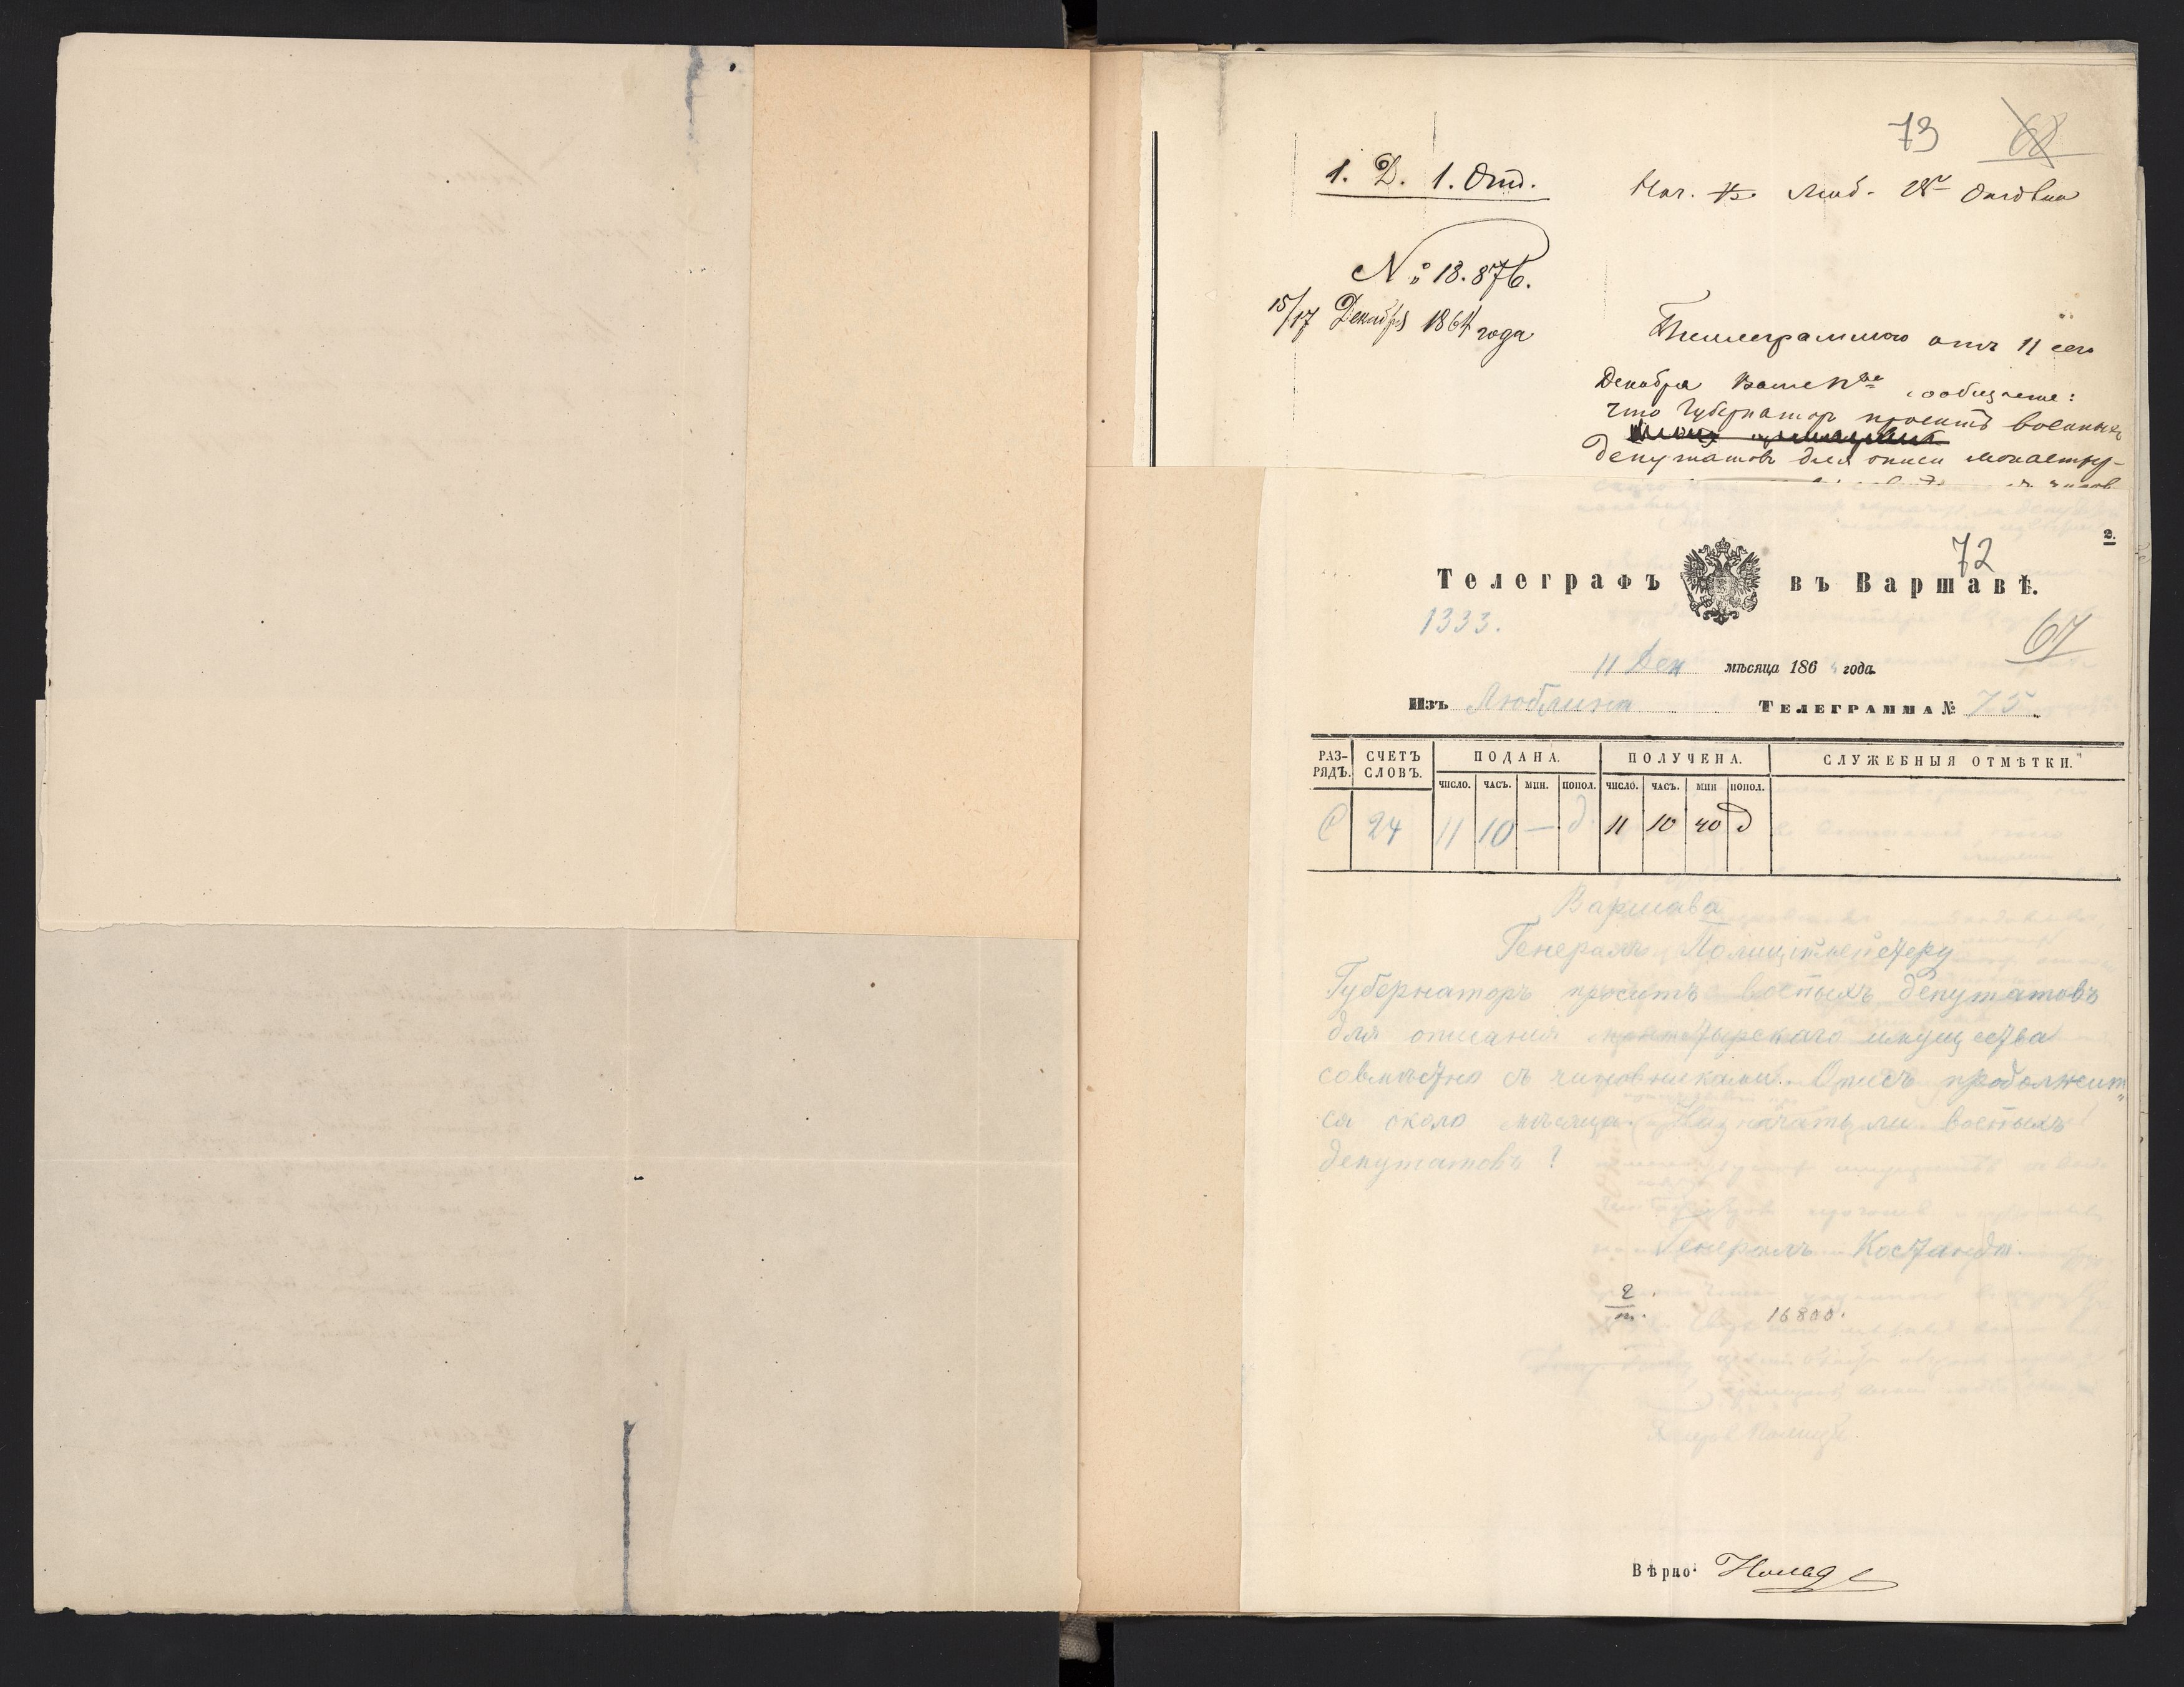 73 68
1. Д. 1. Отд.
Нач. Люб. Отдѣла
№ 13.876.
15/17 Декабря 1864 года
Телеграммою отъ 11 сего
Декабря Ваше сообщаете:
что Губернаторъ проситъ военныхъ
депутатовъ для описи монастыр-
2.
72
Телеграфъ въ Варшавѣ.
1333.
67
11 Дек мѣсяца 1864 года.
Изъ Люблина Телеграмма № 75
РАЗ-РЯДЪ. СЧЕТЪ СЛОВЪ. ПОДАНА. ПОЛУЧЕНА. СЛУЖЕБНЫЯ ОТМѢТКИ.
ЧИСЛО. ЧАСЪ. МИН. ПОПОЛ. ЧИСЛО. ЧАСЪ. МИН ПОПОЛ.
С 24 11 10 — д 11 10 40 д
Варшава
Генералъ Полицiймейстеру
Губернаторъ проситъ военыхъ депутатовъ
для описанiя монастырскаго имущества
совмѣстно съ чиновниками. Опись продолжит„
ся около мѣсяца. Назначать ли военыхъ
депутатовъ?
Генералъ Костанда.
2/м. 16800.
Вѣрно: Нольде